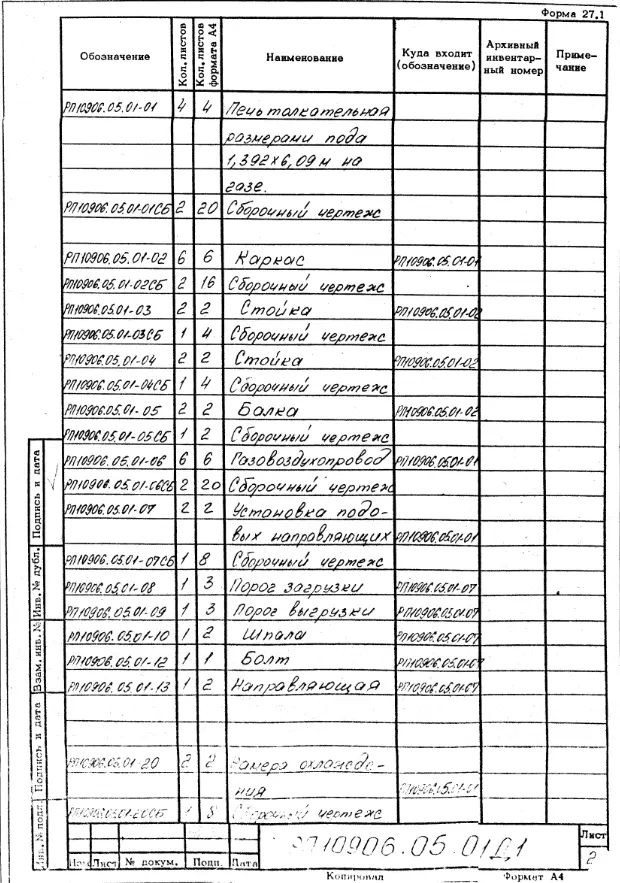 Форма 27.1
Обозначение Кол. листов Кол. листов формата А4 Наименование Куда входит (обозначение) Архивный инвентарный номер Примечание
РП10906.05.01-01 4 4 Печь толкательная
размерами пода
1,392х6,09м на
газе.
РП10906.05.01-01СБ 2 20 Сборочный чертеж
РП10906.05.01-02 6 6 Каркас РП10906.05.01-01
РП10906.05.01-02СБ 2 16 Сборочный чертеж
РП10906.05.01-03 2 2 Стойка РП10906.05.01-02
РП10906.05.01-03СБ 1 4 Сборочный чертеж
РП10906.05.01-04 2 2 Стойка РП10906.05.01-02
РП10906.05.01-04СБ 1 4 Сборочный чертеж
РП10906.05.01-05 2 2 Балка РП10906.05.01-02
РП10906.05.01-05СБ 1 2 Сборочный чертеж
РП10906.05.01-06 6 6 Газовоздухопровод РП10906.05.01-01
РП10906.05.01-06СБ 2 20 Сборочный чертеж
РП10906.05.01-07 2 2 Установка подо-
вых направляющих РП10906.05.01-01
РП10906.05.01-07СБ 1 8 Сборочный чертеж
РП10906.05.01-08 1 3 Порог загрузки РП10906.05.01-07
РП10906.05.01-09 1 3 Порог выгрузки РП10906.05.01-07
РП10906.05.01-10 1 2 Шпала РП10906.05.01-07
РП10906.05.01-12 1 1 Болт РП10906.05.01-07
РП10906.05.01-13 1 2 Направляющая РП10906.05.01-07
РП10906.05.01-20 2 2 Камера охлажде-
ния РП10906.05.01-01
РП10906.05.01-20СБ 1 8 Сборочный чертеж
Инв. № подл. Подпись и дата Взам. инв. № Инв. № дубл. Подпись и дата
РП10906.05.01Д1
Лист
2
Изм Лист № докум. Подп. Дата
Копировал Формат А4